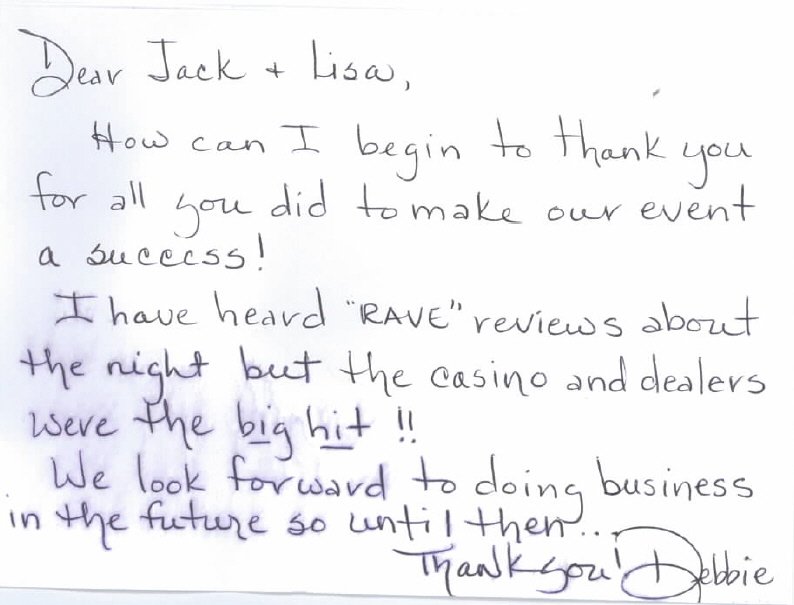 Dear Jack + Lisa,
How can I begin to thank you
for all you did to make our event
a success!
I have heard "RAVE" reviews about
the night but the casino and dealers
were the big hit !!
We look forward to doing business
in the future so until then...
Thank you! Debbie